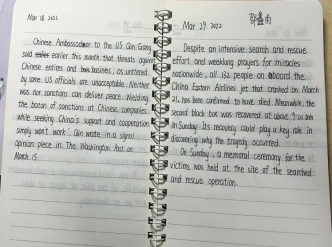 Mar 18. 2022
Chinese Ambassador to the US Qin Gang
said earlier this month that threats against
Chinese entires and business, as uttered
by some US officials are unacceptable. Neither
war nor sanctions can deliver peace. Weilding
the baton of sanctions at Chinese companies
while seeking China's support and cooperation
simply won't work." Qin wrote in a signal
opinion piece in The Washington Post on
March 15.
Mar 29. 2022
Despite an intensive search and rescue
effort and weeklong prayers for miracles
nationwide, all 132 people on aboard the
China Eastern Airlines jet that crashed on March
21, has been confirmed to have died. Meanwhile, the
second black box was recovered at about 9:20 am
on Sunday. Its recovery could play a key role in
discovering why the tragedy occurred.
On Sunday, a memorial ceremony for the
victims was held at the site of the searched
and rescue operation.